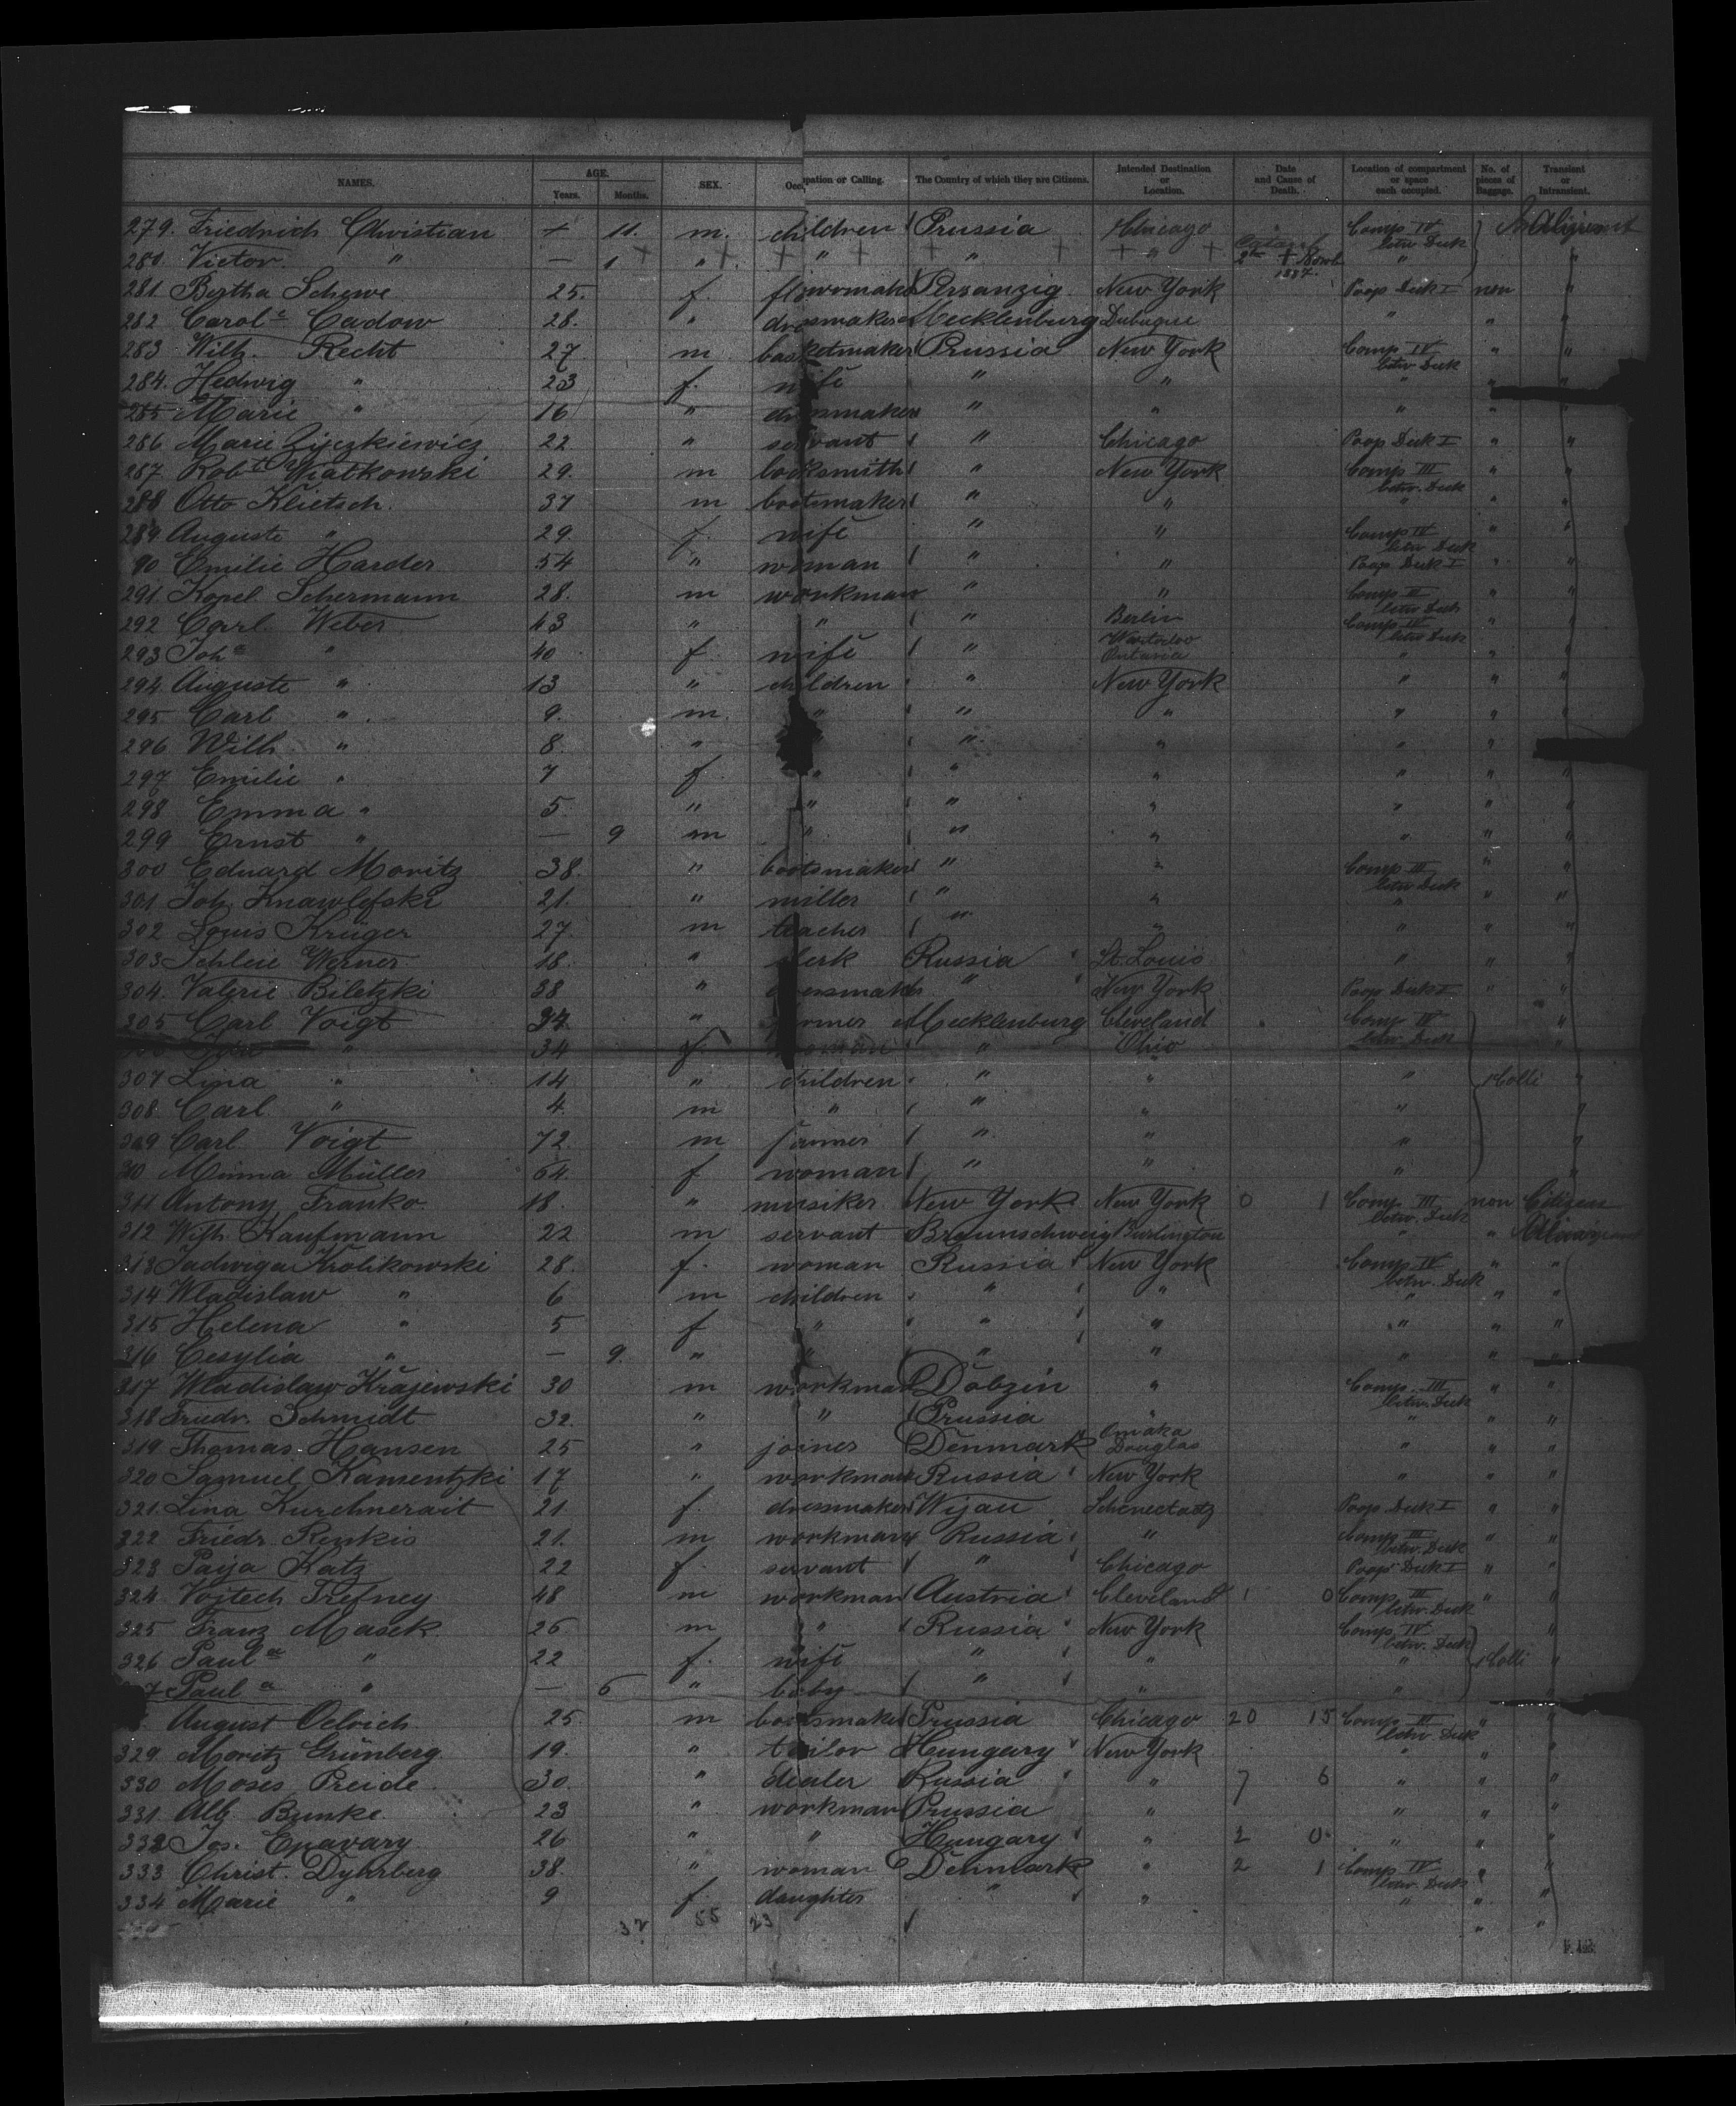 NAMES. AGE. Years. Months. SEX. Occupation or Calling. The Country of which they are Citizens. Intended Destination or Location. Date and Cause of Death. Location of compartment or space each occupied. No. of pieces of Baggage. Transient or Intransient.
279. Friedrich Christian + 11. m. children Prussia Chicago Comp IV betw Deck
280. Victor " — 1 " " " " 2te 1887. "
281. Bertha Schewe 25. f. Persanzig New York Poop Deck I non "
282 Carole Cadow 28. " dressmaker Mecklenburg Dubuque " " "
283 Wilh. Recht 27 m basketmaker Prussia New York Comp IV betw Deck " "
284. Hedwig " 23 f. wife " " " "
285 Marie " 16 " dressmaker " " " " "
286 Marie 22 " servant " Chicago Poop Deck I " "
287 Robt Wiatkowski 29. m locksmith " New York Comp III betw. Deck " "
288 Otto Klietsch. 37 m bootsmaker " " " " "
289. Auguste " 29. f. wife " " Comp IV betw Deck " "
90 Emilie Harder 54 " woman " " Poop Deck I " "
291. Kopel Schermann 28. m workman " " Comp II betw Deck " "
292 Carl Weber 43 " " " Berlin Comp IV betw Deck "
293 Johe " 40 f. wife " Waterloo " "
294 Auguste " 13 " children " New York " " "
295 Carl " 9. m. " " " " " "
296 Wilh. " 8. " " " " " "
297 Emilie " 7 f " " " " " "
298 Emma " 5. " " " " " " "
299 Ernst " — 9 m " " " " " "
300 Eduard Moritz 38. " bootsmaker " " Comp III betw Deck " "
301 Joh. 21. " miller " " " " "
302 Louis Krüger 27. m teacher " " " " "
303 Schleie Werner 18. " clerk Russia St. Louis " " "
304. Valerie Biletzki 38 " dressmaker " New York Poop Deck I " "
305 Carl Voigt 34. " farmer Mecklenburg Cleveland Comp IV betw. Deck "
" 34 f. woman " Ohio "
307 Lina " 14 " children " " " 1 Colli "
308. Carl " 4. m " " " " "
309 Carl Voigt 72. m farmer " " " "
310 Minna Müller 64. f woman " " " "
311 Antony Franko 18. " musiker New York New York 0 1 Comp III betw. Deck non Citizen
312 Wilh. Kaufmann 22 m servant Braunschweig Burlington " "
313 Jadwiga Krolikowski 28. f. woman Russia New York Comp IV betw. Deck " "
314 Wladislaw " 6 m children " " " " "
315 Helena " 5 f " " " " " "
316 Cesylia " — 9. " " " " " " "
317 Wladislaw Krajewski 30 m workman Dobzin " Comp. III betw. Deck " "
318 Friedr. Schmidt 32. " " Prussia " " " "
319. Thomas Hansen 25 " joiner Denmark Omaka Douglas " " "
320 Samuel Kamentzki 17 " workman Russia New York " " "
321. Lina Kurchnerait 21. f. dressmaker Wijau Poop Deck I " "
322 Friedr. 21. m workman Russia " Comp III betw. Deck " "
323 Paija Katz 22 f. servant " Chicago Poop Deck I " "
324. Vojtech Trefney 48 m workman Austria Cleveland 1 0 Comp III betw. Deck " "
325 Franz Masek 26 m " Russia New York Comp IV betw. Deck "
326 Paula " 22 f. wife " " " 1 Colli "
7 Paula " — 6 " baby " " " "
August Oelrich 25. m bootsmaker Prussia Chicago 20 15 Comp III betw. Deck " "
329. Moritz Grünberg 19. " tailor Hungary New York " " "
330 Moses Preide 30. " dealer Russia " 7 6 " " "
331. Alb. Bunke. 23 " workman Prussia " " " "
332 Jos. 26 " " Hungary " 0 " " "
333 Christ. Dyhrberg 38. " woman Denmark " 2 1 Comp IV betw. Deck " "
334 Marie " 9 f. daughter " " " " "
32 55 23 " "